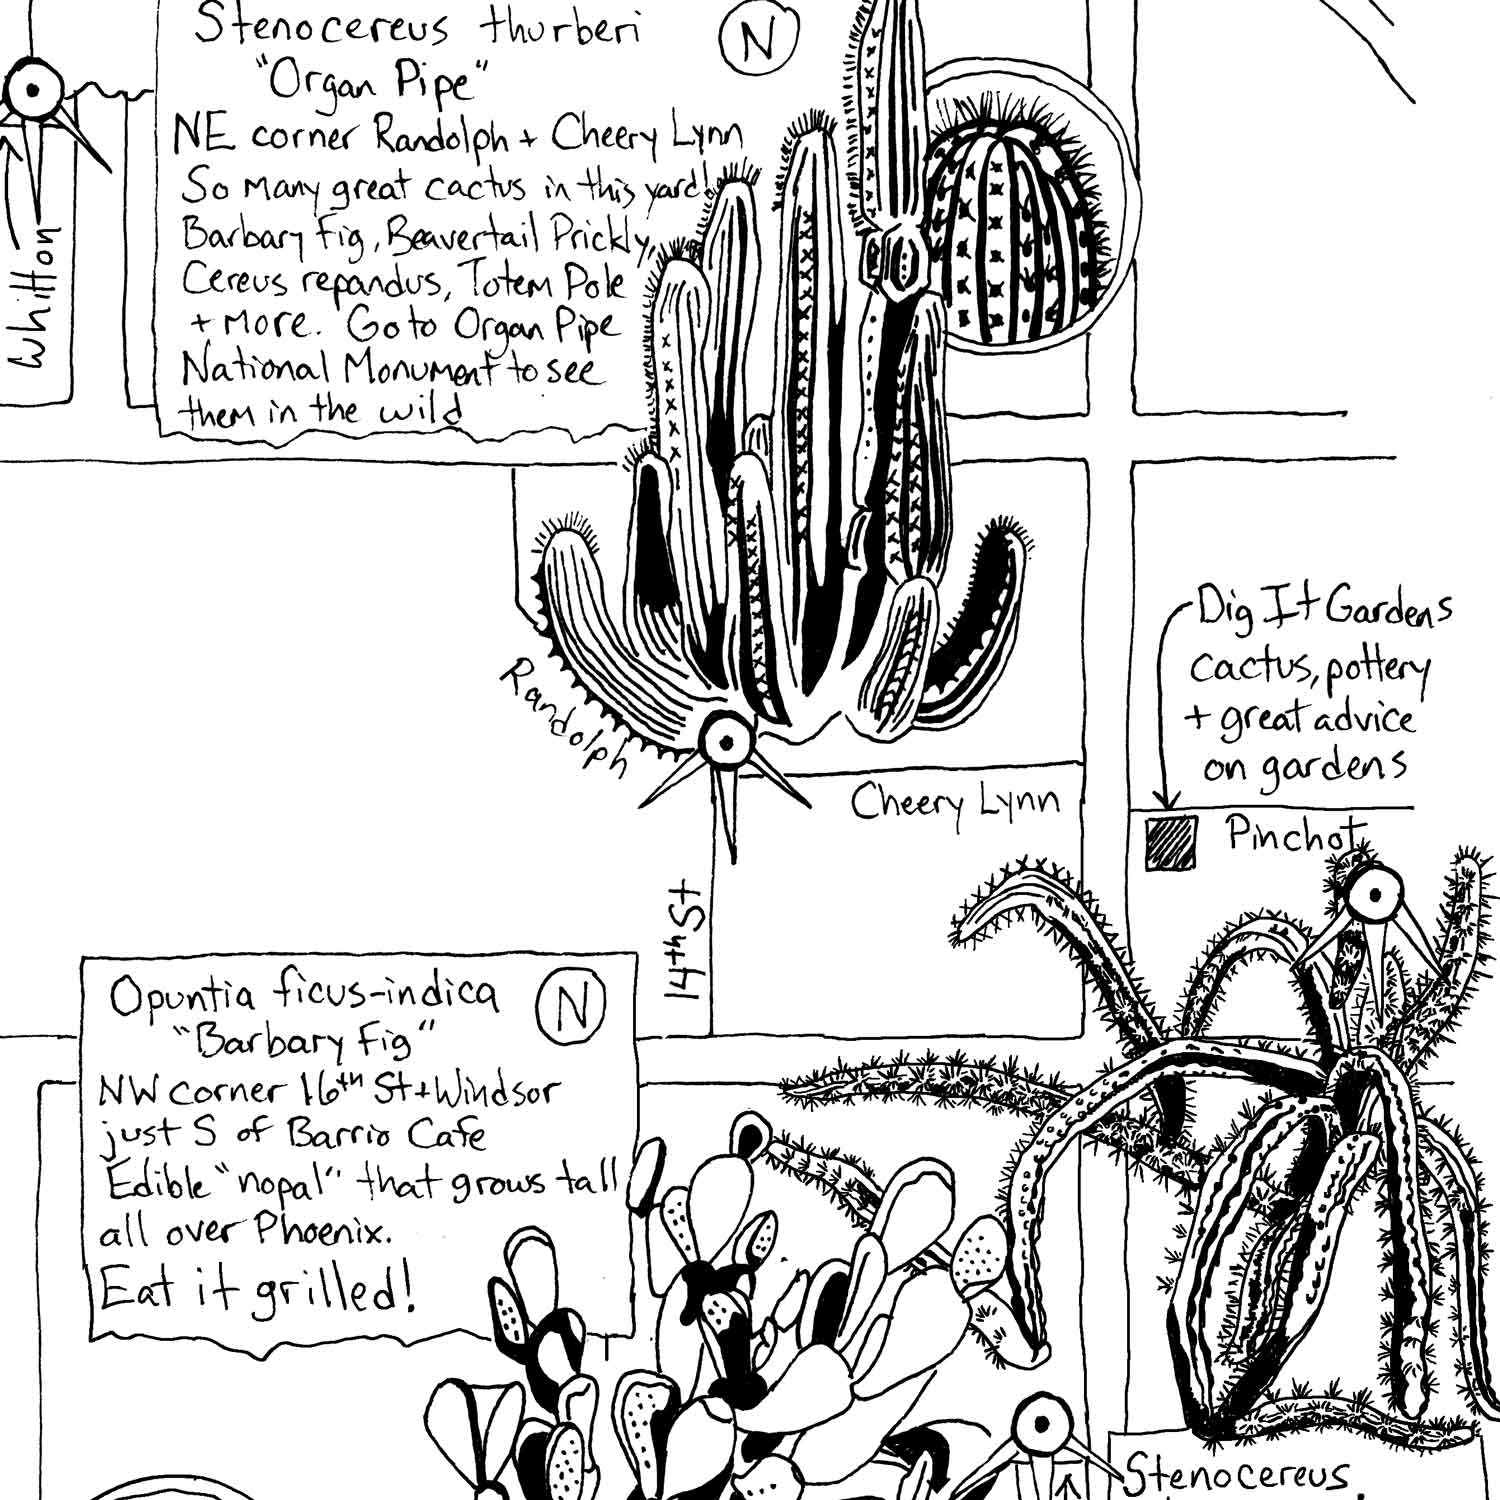 Stenocereus thurberi
"Organ Pipe"
N
NE corner Randolph + Cheery Lynn
So many great cactus in this yard!
Barbary Fig, Beavertail Prickly,
Cereus repandus, Totem Pole
+ more. Go to Organ Pipe
National Monument to see
them in the wild
Whitton
Randolph
Cheery Lynn
14th St
Dig It Gardens
cactus, pottery
+ great advice
on gardens
Pinchot
Opuntia ficus-indica
"Barbary Fig"
N
NW corner 16th St + Windsor
just S of Barrio Cafe
Edible "nopal" that grows tall
all over Phoenix.
Eat it grilled!
Stenocereus